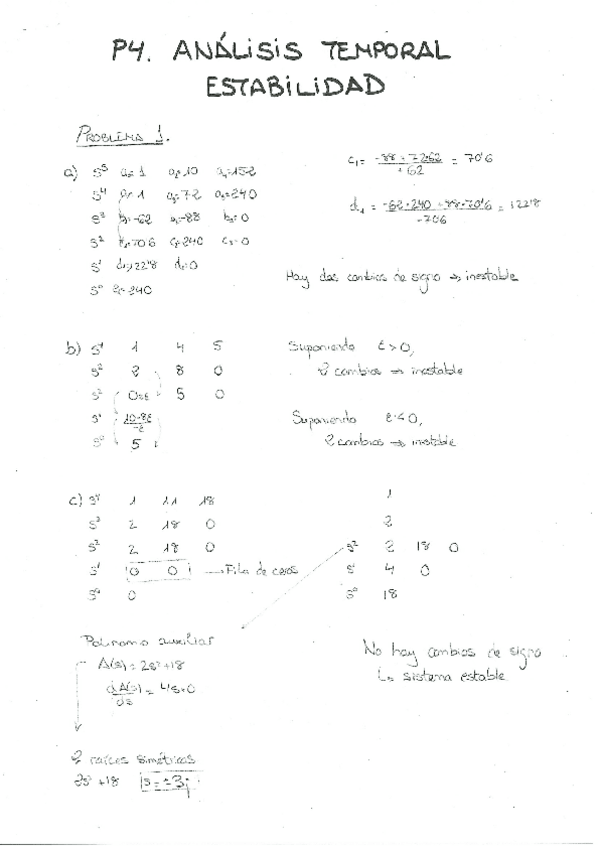 P4. ANÁLISIS TEMPORAL
ESTABILIDAD
PROBLEMA 1.
a) S⁵ a₀=1 a₂=10 a₄=152
S⁴ a₁=1 a₃=72 a₅=240
S³ b₁=-62 -88 b₃=0
S² c₁=70'6 c₂=240 c₃=0
S¹ d₁=122'8 d₂=0
S⁰ e₁=240
c₁= -88 + 72·62 / +62 = 70'6
d₁ = -62·240 - -88·70'6 / -70'6 = 122'8
Hay dos cambios de signo → inestable
b) S⁴ 1 4 5
S³ 2 8 0
S² 0=ε 5 0
S¹ 10-8ε / -ε
S⁰ 5
Suponiendo ε>0,
2 cambios → inestable
Suponiendo ε<0,
2 cambios → inestable
c) S⁴ 1 11 18
S³ 2 18 0
S² 2 18 0
S¹ 0 0 → Fila de ceros
S⁰ 0
1
2
S² 2 18 0
S¹ 4 0
S⁰ 18
Polinomo auxiliar
A(s) = 2s²+18
dA(s)/ds = 4s+0
2 raíces simétricas
2s² +18 s=±3j
No hay cambios de signo
↳ sistema estable